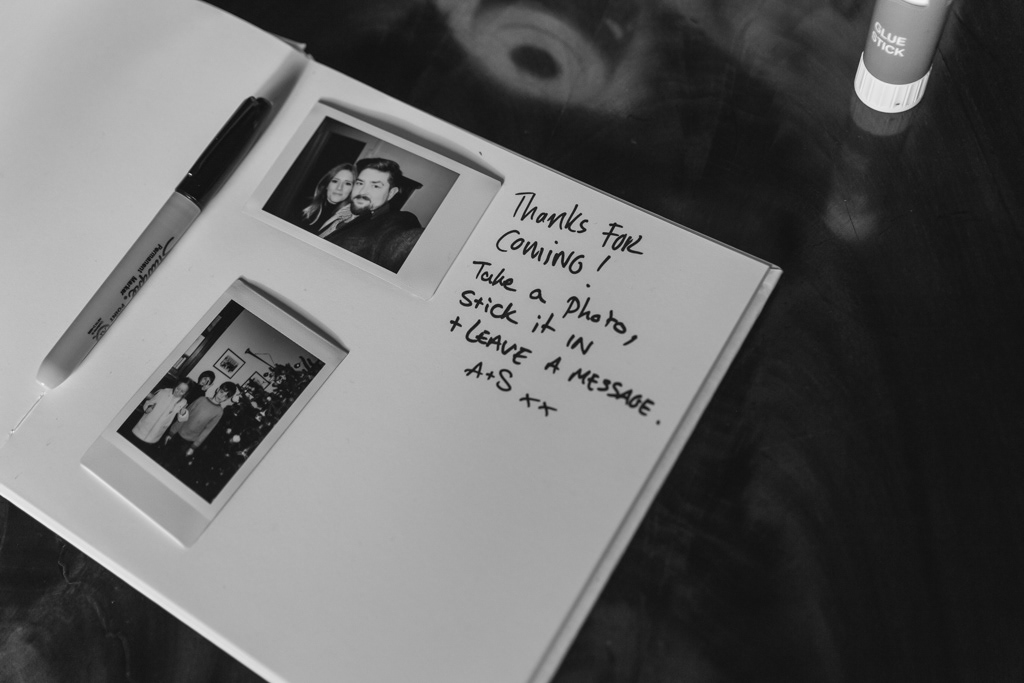 Thanks For
Coming!
Take a photo,
Stick it IN
+ LEAVE A MESSAGE.
A+S xx
GLUE
STICK
Sharpie
Permanent Marker